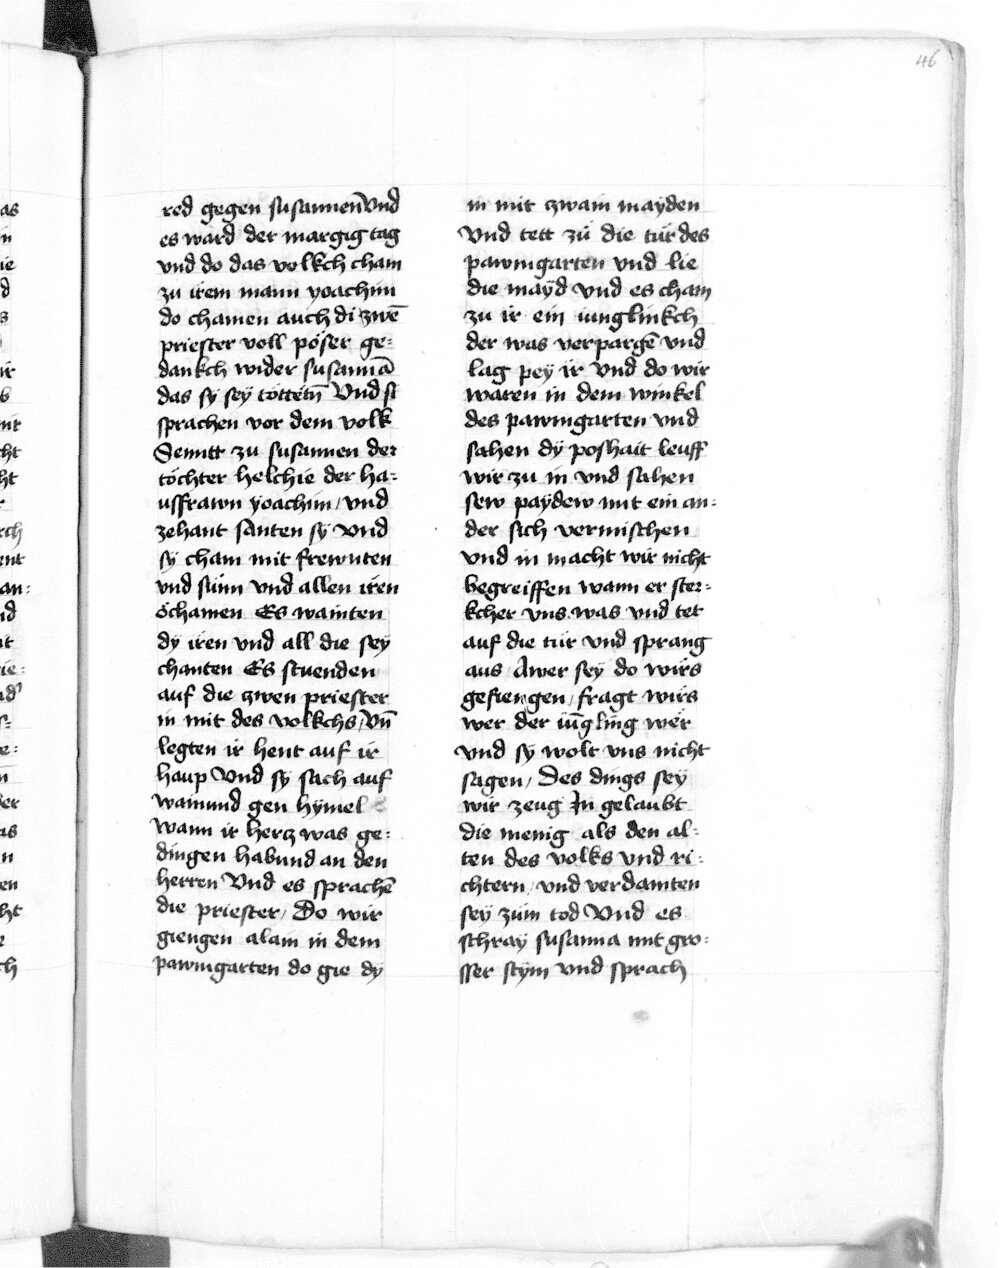 46
red gegen susannen Vnd
es ward der margig tag
vnd do das volkch cham
zu irem mann yoachim
do chamen auch di zwen̄
priester voll poser ge=
dankch wider susannā
das sy sey töttetn̄ Vnd si
sprachen vor dem volk
Senntt zu susannen der
töchter helchie der ha=
usfrawn yoachim / vnd
zehant santen sy vnd
sy cham mit frewnten
vnd sünn vnd allen iren
öchamen Es wainten
dy iren vnd all die sey
chanten Es stuenden
auf die zwen priester
in mit des volkchs / Vn̄
legten ir hent auf ir
haup Vnd sy sach auf
wainund gen hymel
wann ir hercz was ge=
dingen habund an den
herren Vnd es sprachē
die priester / Do wir
giengen alain in dem
pawmgarten do gie dy
in mit zwain mayden
Vnd tett zu die tür des
pawmgarten vnd lie
die mayd Vnd es cham
zu ir ein iunglinkch
der was verpargē vnd
lag pey ir Vnd do wir
waren in dem winkel
des pawmgarten vnd
sahen dy poshait leuff
wir zu in vnd sahen
sew paydew mit ein an=
der sich vermischen
vnd in macht wir nicht
begreiffen wann er ster=
kcher vns was vnd tet
auf die tür vnd sprang
aus Awer sey do wirs
gefiengen / fragt wirs
wer der iūgling wer
vnd sy wolt vns nicht
sagen / Des dings sey
wir zeug In gelaubt
die menig als den al=
ten des volks vnd ri=
chtern / vnd verdamten
sey zum tod Vnd es
schray susanna mit gro=
sser stym vnd sprach